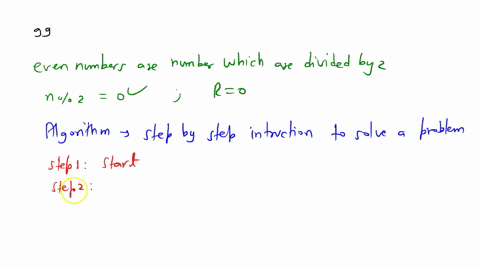 99
even numbers are number which are divided by 2
n % 2 = 0 ✓ ; R = 0
Algorithm → step by step intruction to solve a problem
step 1: start
step 2: